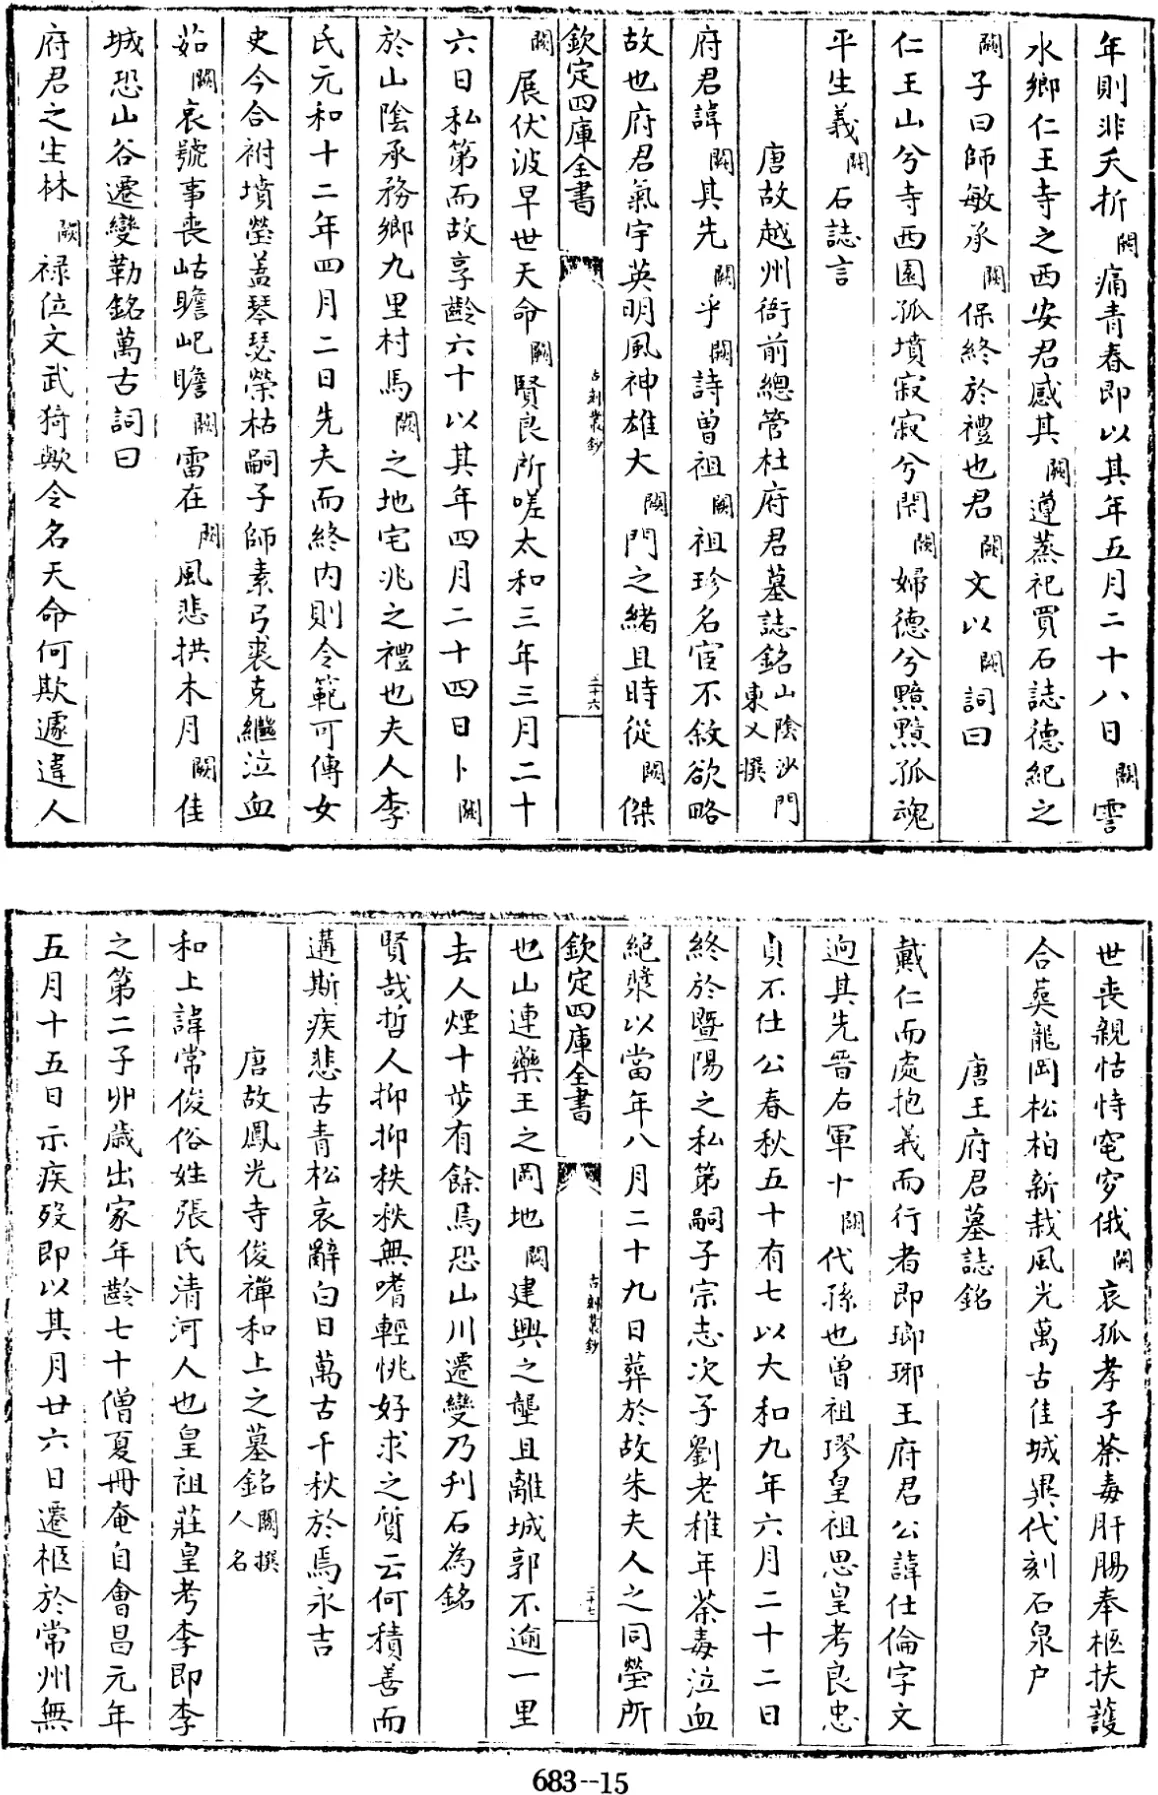 年則非夭折闕痛青春即以其年五月二十八日闕雩
水鄉仁王寺之西安君感其闕遵蒸祀買石誌德紀之
闕子曰師敏承闕保終於禮也君闕文以闕詞曰
仁王山兮寺西園孤墳寂寂兮閇闕婦德兮黯黯孤魂
平生義闕石誌言
唐故越州衙前總管杜府君墓誌銘山陰沙門東乂撰
府君諱闕其先闕乎闕詩曾祖闕祖珍名宦不敘欲略
故也府君氣宇英明風神雄大闕門之緒且時從闕傑
欽定四庫全書
古刻叢鈔
三十六
闕展伏波早世天命闕賢良所嗟太和三年三月二十
六日私第而故享齡六十以其年四月二十四日卜闕
於山陰承務鄉九里村馬闕之地宅兆之禮也夫人李
氏元和十二年四月二日先夫而終内則令範可傳女
史今合祔墳塋盖琴瑟榮枯嗣子師素弓裘克繼泣血
茹闕哀號事喪岵瞻屺瞻闕雷在闕風悲拱木月闕佳
城恐山谷遷變勒銘萬古詞曰
府君之生林闕禄位文武猗歟令名天命何欺遽違人
世喪親怙恃窀穸俄闕哀孤孝子荼毒肝腸奉柩扶護
合葬龍岡松柏新栽風光萬古佳城異代刻石泉户
唐王府君墓誌銘
戴仁而處抱義而行者即瑯琊王府君公諱仕倫字文
逈其先晋右軍十闕代孫也曾祖璆皇祖思皇考良忠
貞不仕公春秋五十有七以大和九年六月二十二日
終於暨陽之私第嗣子宗志次子劉老稚年荼毒泣血
絕漿以當年八月二十九日葬於故朱夫人之同塋所
欽定四庫全書
古刻叢鈔
三十七
也山連藥王之岡地闕建興之壟且離城郭不逾一里
去人煙十步有餘焉恐山川遷變乃刊石為銘
賢哉哲人抑抑秩秩無嗜輕恌好求之質云何積善而
遘斯疾悲古青松哀辭白日萬古千秋於焉永吉
唐故鳳光寺俊禪和上之墓銘闕撰人名
和上諱常俊俗姓張氏清河人也皇祖莊皇考李即李
之第二子丱歲出家年齡七十僧夏冊奄自會昌元年
五月十五日示疾歿即以其月廿六日遷柩於常州無
683--15